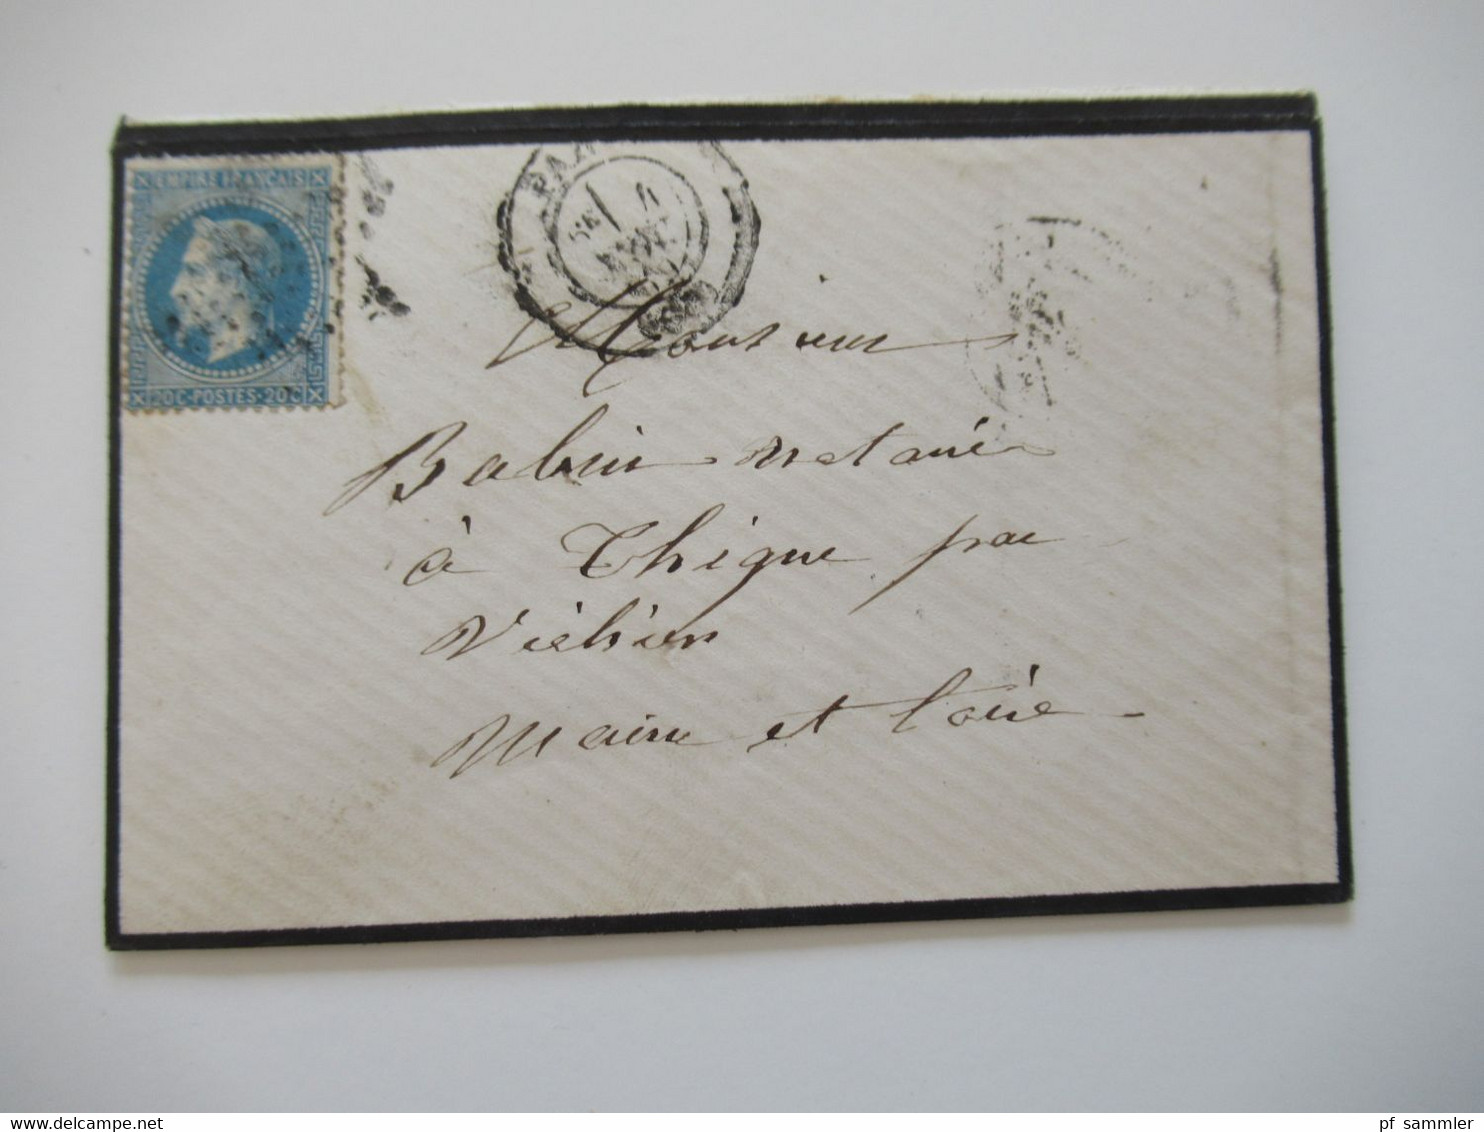 EMPIRE FRANÇAIS
20C·POSTES·20C
Monsieur
Babin notaire
à Thigne par
Viehien
Maine et Loire
delcampe.net
pf_sammler